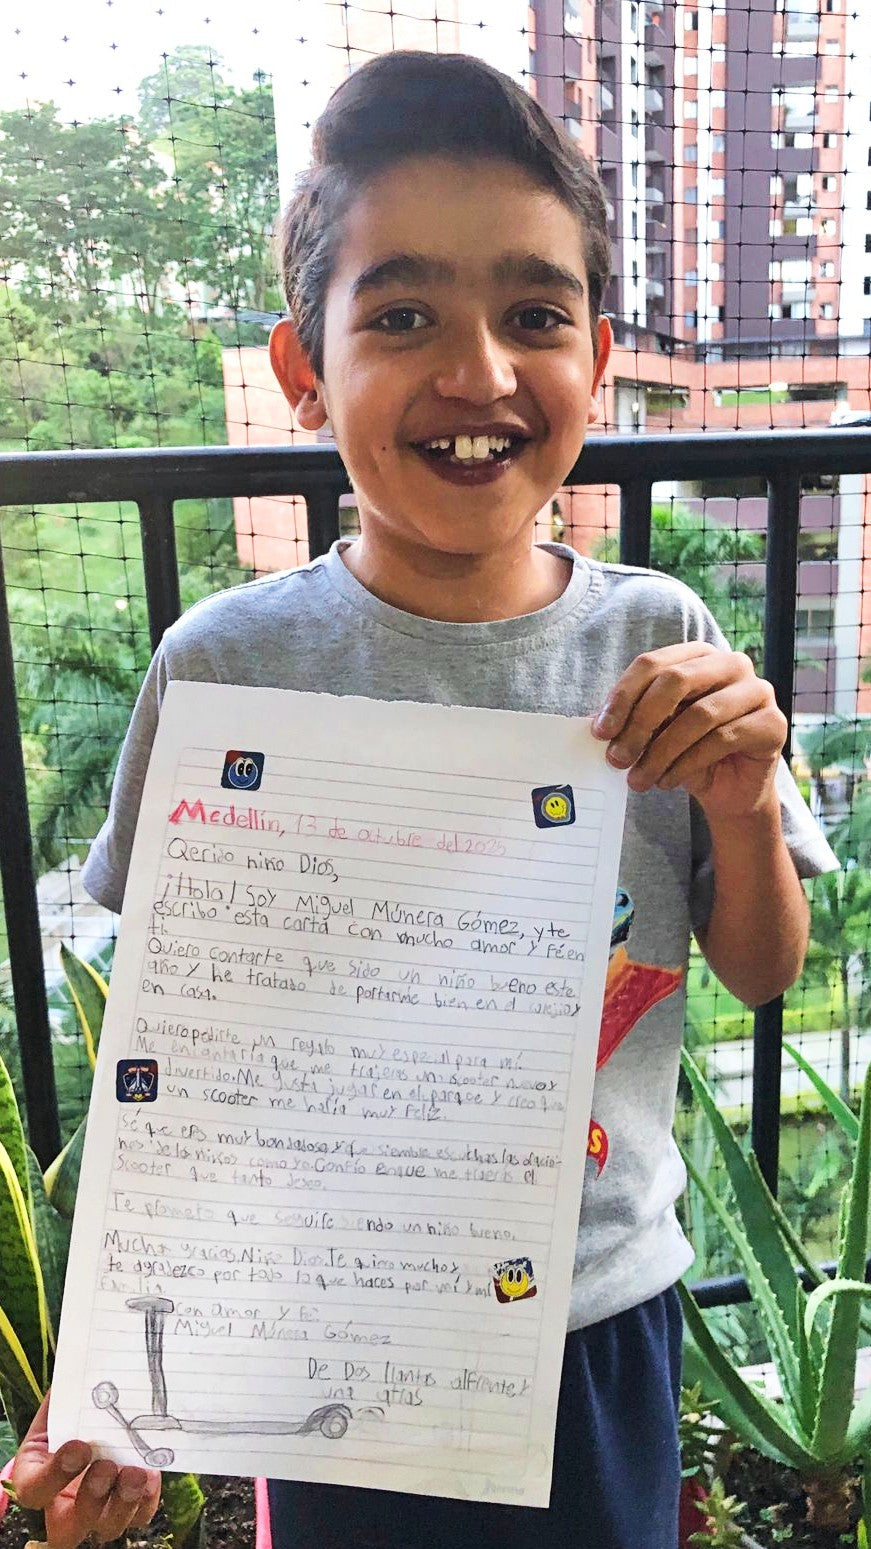 Medellín, 13 de octubre del 2025
Qerido niño Dios,
¡Hola! Soy Miguel Múnera Gómez, y te
escribo esta carta con mucho amor y Fé en
ti.
Quiero contarte que sido un niño bueno este
año y he tratado de portarme bien en el colejio y
en casa.
Quiero pedirte un regalo muy especial para mí.
Me encantaría que me trajeras un scooter nuevo y
divertido. Me gusta jugar en el parque y creo que
un scooter me haría muy feliz.
Sé que eres muy bondadoso y que siembre escuchas las oracio-
nes de los niños como yo. Confío en que me traerás el
scooter que tanto deseo.
Te prometo que seguiré siendo un niño bueno.
Muchas gracias, Niño Dios. Te quiero mucho y
te agradezco por todo lo que haces por mí y mi
familia
con amor y Fé:
Miguel Múnera Gómez
De Dos llantas alfrente y
una atras